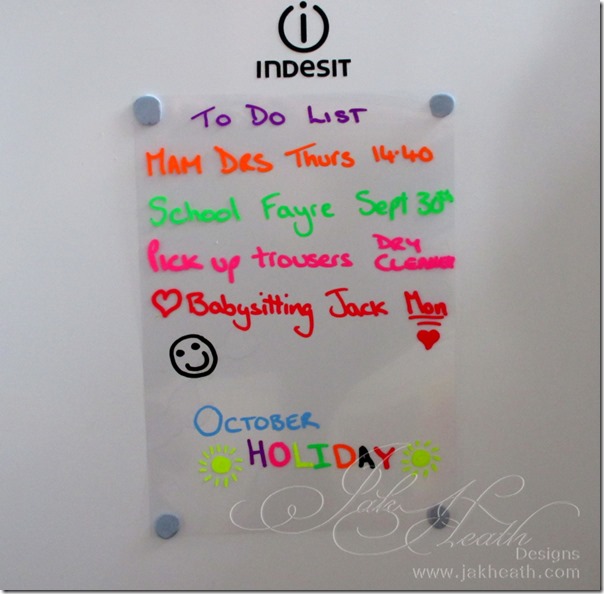 INDESIT
TO DO LIST
MAM DRS Thurs 14.40
School Fayre Sept 30th
PICK up trousers DRY CLEANER
Babysitting Jack Mon
OCTOBER
HOLIDAY
Jak Heath
Designs
www.jakheath.com